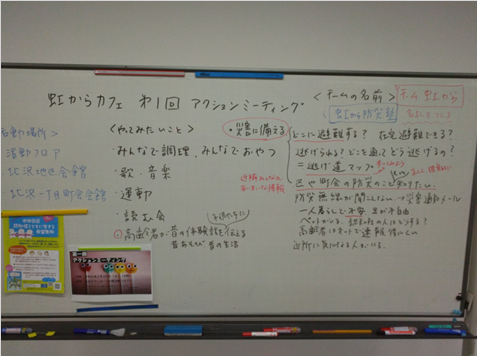 虹からカフェ 第1回 アクションミーティング
<チームの名前>
チーム 虹から
虹から防災塾
活動場所>
活動フロア
北沢地区会館
北沢一丁目町会会館
<やってみたいこと>
・みんなで調理、みんなでおやつ
・歌・音楽
・運動
・読む会
高齢者が昔の体験談を伝える
昔あそび 昔の生活
・災害に備える
どこに避難する? 在宅避難できる?
逃げられる? どこを通ってどう逃げるの?
＝逃げ道マップ
区や町会の防災のこと知りたい
防災無線が聞こえない→災害通知メール
一人暮らしで不安 足が不自由
ペットがいる
高齢者はネットで連報得にくい
近所に気になる人がいる。